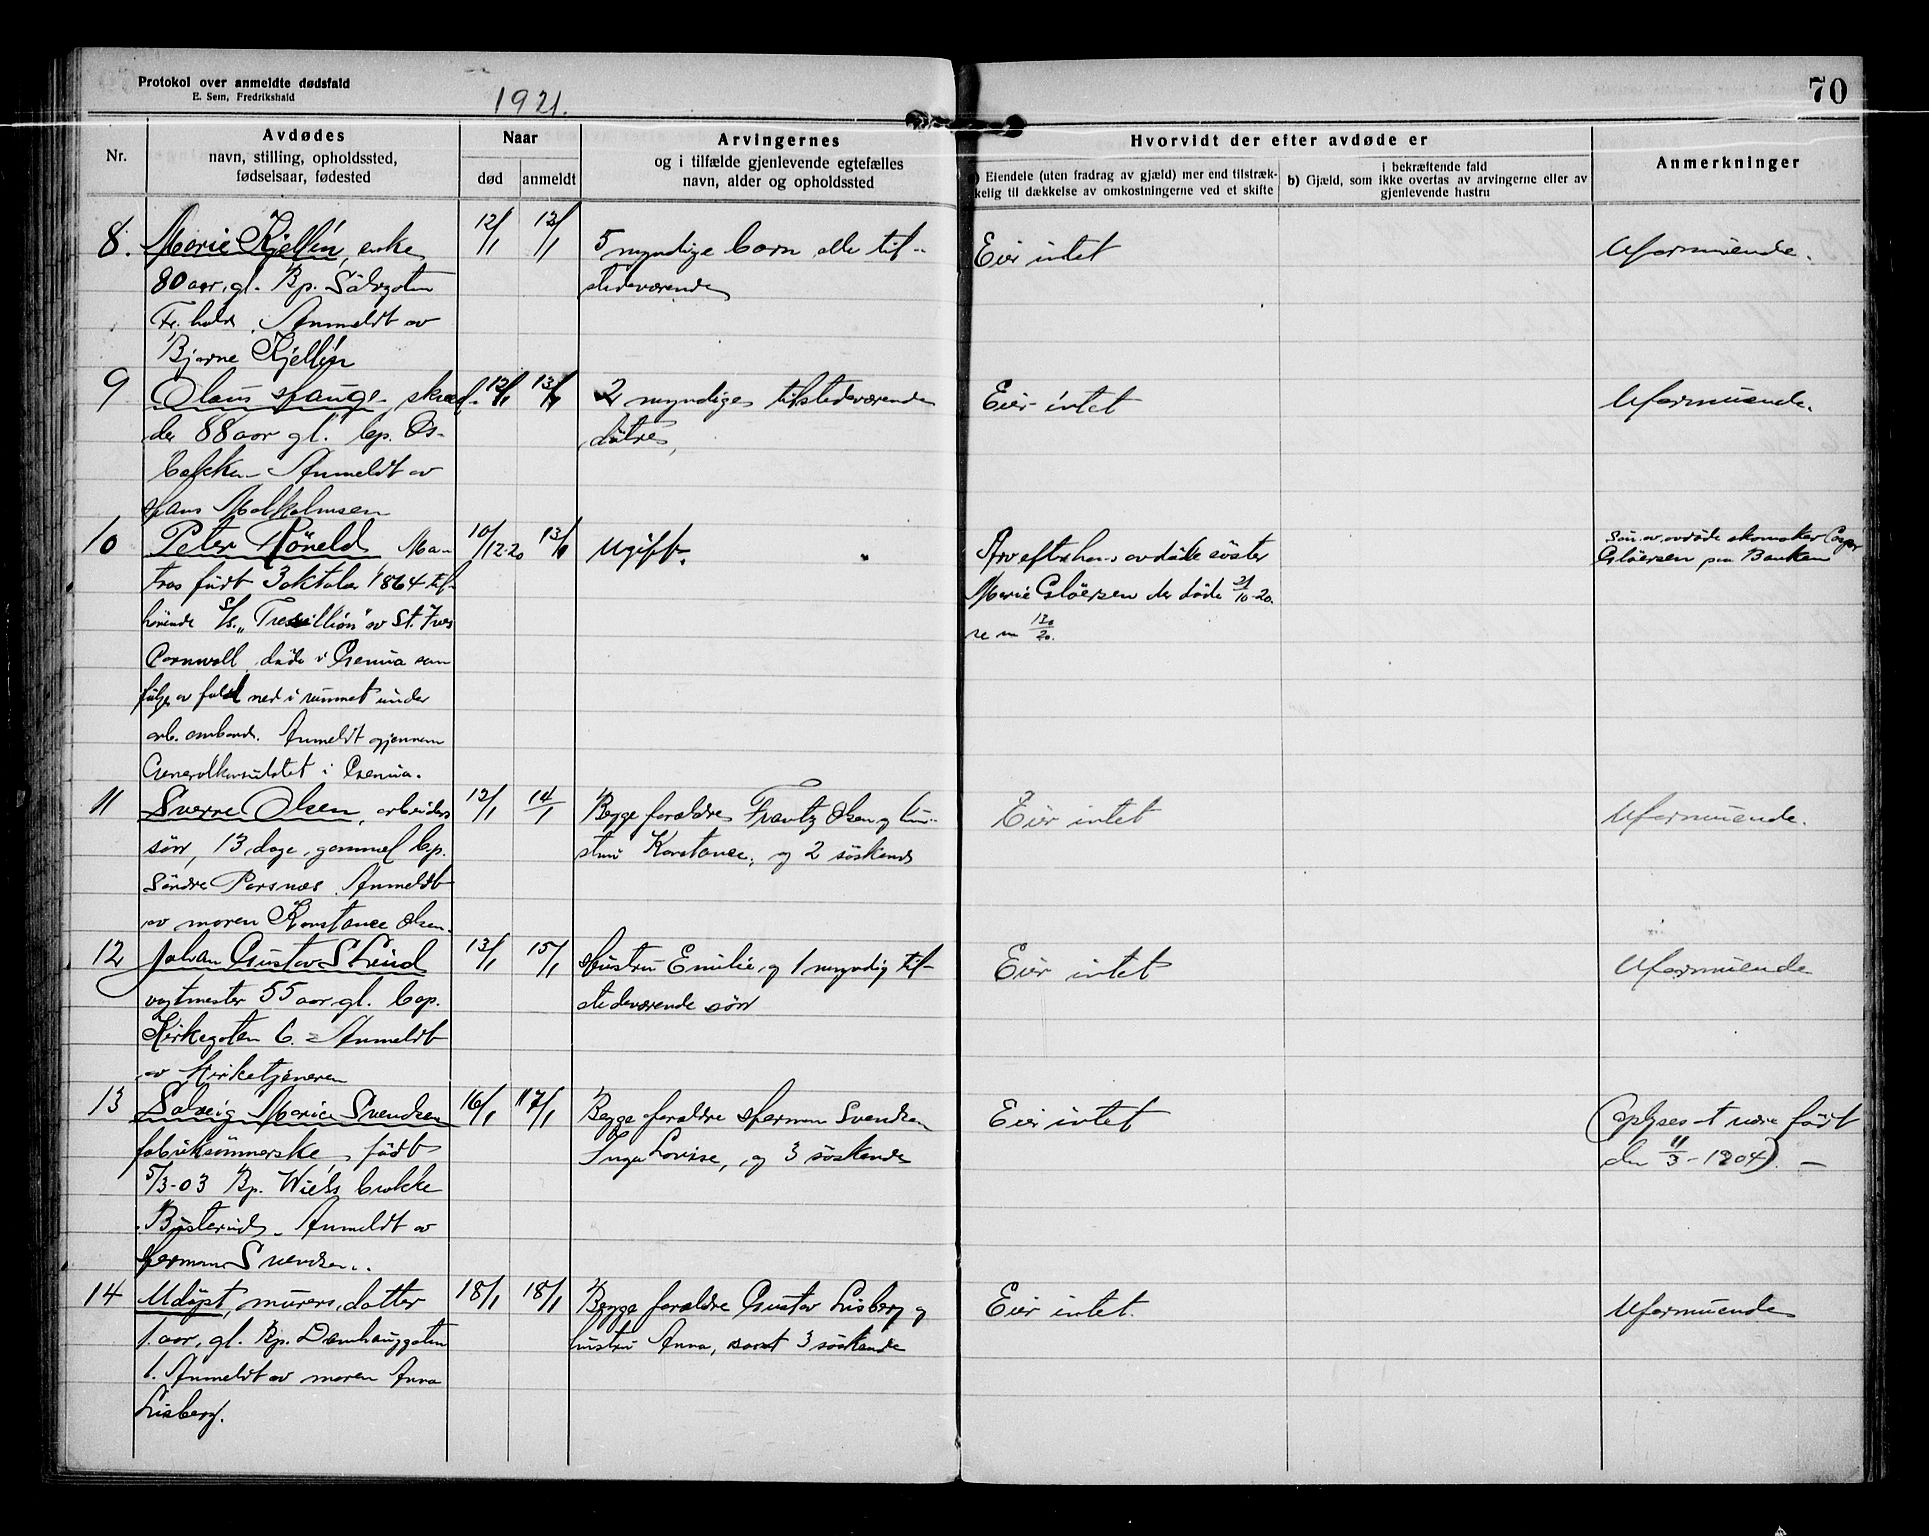 Protokol over anmeldte dødsfald
E. Sem, Fredrikshald
1921.
70
Nr.
Avdødes
navn, stilling, opholdssted,
fødselsaar, fødested
Naar
død
anmeldt
Arvingernes
og i tilfælde gjenlevende egtefælles
navn, alder og opholdssted
Hvorvidt der efter avdøde er
) Eiendele (uten fradrag av gjæld) mer end tilstræk-
kelig til dækkelse av omkostningerne ved et skifte
i bekræftende fald
b) Gjæld, som ikke overtas av arvingerne eller av
gjenlevende hustru
Anmerkninger
8. Marie Kjellén, enke
80 aar. gl. Bp.
Fr.hald. Anmeldt av
Bjarne Kjellén
12/1
13/1
5 myndige barn alle til-
stedeværende
Eier intet
Uformuende.
9 Olaus Hauge, skræd-
der 88 aar gl. bp. Os-
bakken Anmeldt av
Hans Malkolmsen
12/1
13/1
2 myndige tilstedeværende
døtre,
Eier intet
Uformuende.
10 Peter Røneld Ma-
tros født 3 oktober 1864 til-
hørende S/s. "Tressillion" av St. Ives
Cornwall, døde i Genua som
følge av fald ned i rummet under
arb. ombord. Anmeldt gjennem
Generalkonsulatet i Genua.
10/12-20
13/1
Ugift.
Arv efter hans avdøde søster
Marie Gløersen der døde 21/10-20.
Søn av avdøde skomaker
Gløersen paa Banken
11 Sverre Olsen, arbeiders
søn, 13 dage, gammel bp.
Søndre Parsnæs. Anmeldt
av moren Konstance Olsen.
12/1
14/1
Begge forældre Frantz Olsen og hu-
stru Konstance, og 2 søskende
Eier intet
Uformuende.
12 Johan Gustav Strind
vagtmester 55 aar, gl. bop.
Kirkegaten 6. Anmeldt
av Kirketjeneren
13/1
15/1
Hustru Emilie, og 1 myndig til-
stedeværende søn
Eier intet
Uformuende
13 Solveig Marie Svendsen
fabriksømmerske, født
5/3-03 Bp. Wiels brakke
Busterud. Anmeldt av
Herman Svendsen..
16/1
17/1
Begge forældre Herman Svendsen
Inga Lovise, og 3 søskende
Eier intet
(oplyses at være født
den 11/3-1904). —
14 Udøpt, murers, datter
1. aar, gl. Bp. Damhauggaten
1. Anmeldt av moren Anna
Lisberg.
18/1
18/1
Begge forældre Gustav Lisberg og
hustru Anna, samt 3 søskende
Eier intet.
Uformuende